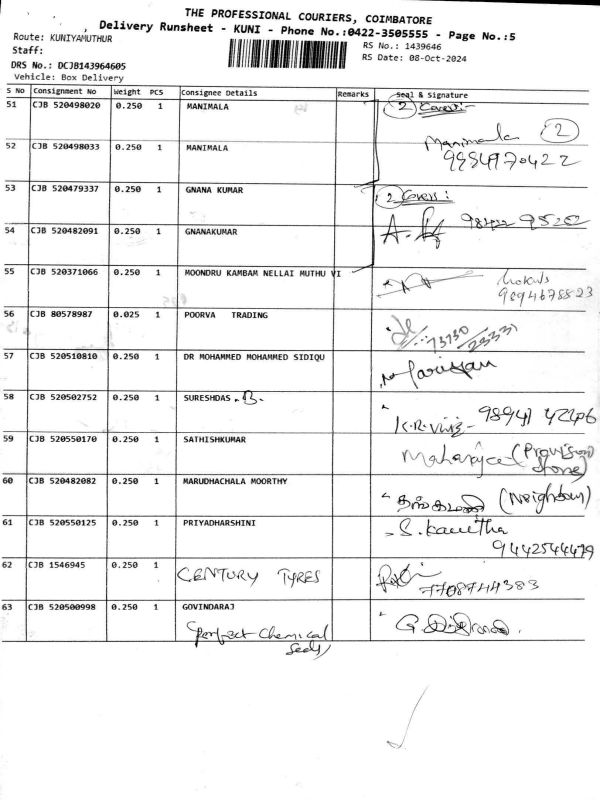 THE PROFESSIONAL COURIERS, COIMBATORE
Delivery Runsheet - KUNI - Phone No.:0422-3505555 - Page No.:5
Route: KUNIYAMUTHUR
RS No.: 1439646
Staff:
RS Date: 08-Oct-2024
DRS No.: DCJB143964605
Vehicle: Box Delivery
S No Consignment No Weight PCS Consignee Details Remarks Seal & Signature
51 CJB 520498020 0.250 1 MANIMALA 2 Covers:-
Manimala 2
52 CJB 520498033 0.250 1 MANIMALA
53 CJB 520479337 0.250 1 GNANA KUMAR 2 Covers:
54 CJB 520482091 0.250 1 GNANAKUMAR
55 CJB 520371066 0.250 1 MOONDRU KAMBAM NELLAI MUTHU VI
9894678823
56 CJB 80578987 0.025 1 POORVA TRADING
73730
23331
57 CJB 520510810 0.250 1 DR MOHAMMED MOHAMMED SIDIQU
58 CJB 520502752 0.250 1 SURESHDAS .B.
98941 42206
59 CJB 520550170 0.250 1 SATHISHKUMAR (Provision
Store)
60 CJB 520482082 0.250 1 MARUDHACHALA MOORTHY (Neighbour)
61 CJB 520550125 0.250 1 PRIYADHARSHINI S. Kavitha
9442544479
62 CJB 1546945 0.250 1 CENTURY TYRES
7708744383
63 CJB 520500998 0.250 1 GOVINDARAJ
Perfect Chemical
Seeds